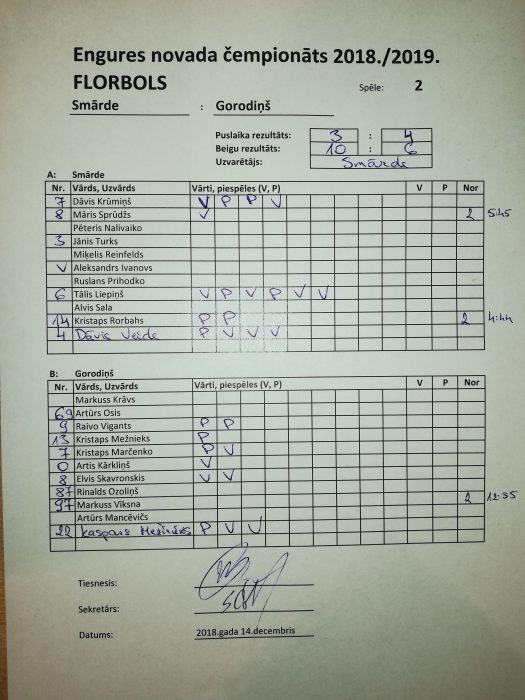 Engures novada čempionāts 2018./2019.
FLORBOLS Spēle: 2
Smārde : Gorodiņš
Puslaika rezultāts: 3 : 4
Beigu rezultāts: 10 : 6
Uzvarētājs: Smārde
A: Smārde
Nr. Vārds, Uzvārds Vārti, piespēles (V, P) V P Nor
7 Dāvis Krūmiņš V P P V
8 Māris Sprūdžs V 2 5:45
Pēteris Nalivaiko
3 Jānis Turks
Miķelis Reinfelds
V Aleksandrs Ivanovs
Ruslans Prihodko
6 Tālis Liepiņš V P V P V V
Alvis Sala
14 Kristaps Rorbahs P P 2 4:44
4 Dāvis Veide P V V V
B: Gorodiņš
Nr. Vārds, Uzvārds Vārti, piespēles (V, P) V P Nor
Markuss Krāvs
69 Artūrs Osis
9 Raivo Vigants P P
13 Kristaps Mežnieks P
7 Kristaps Marčenko P V
0 Artis Kārkliņš V
8 Elvis Skavronskis V V
87 Rinalds Ozoliņš
97 Markuss Vīksna 2 12:35
Artūrs Mancēvičs
22 Kaspars Mežnieks P V V
Tiesnesis:
Sekretārs:
Datums: 2018.gada 14.decembris